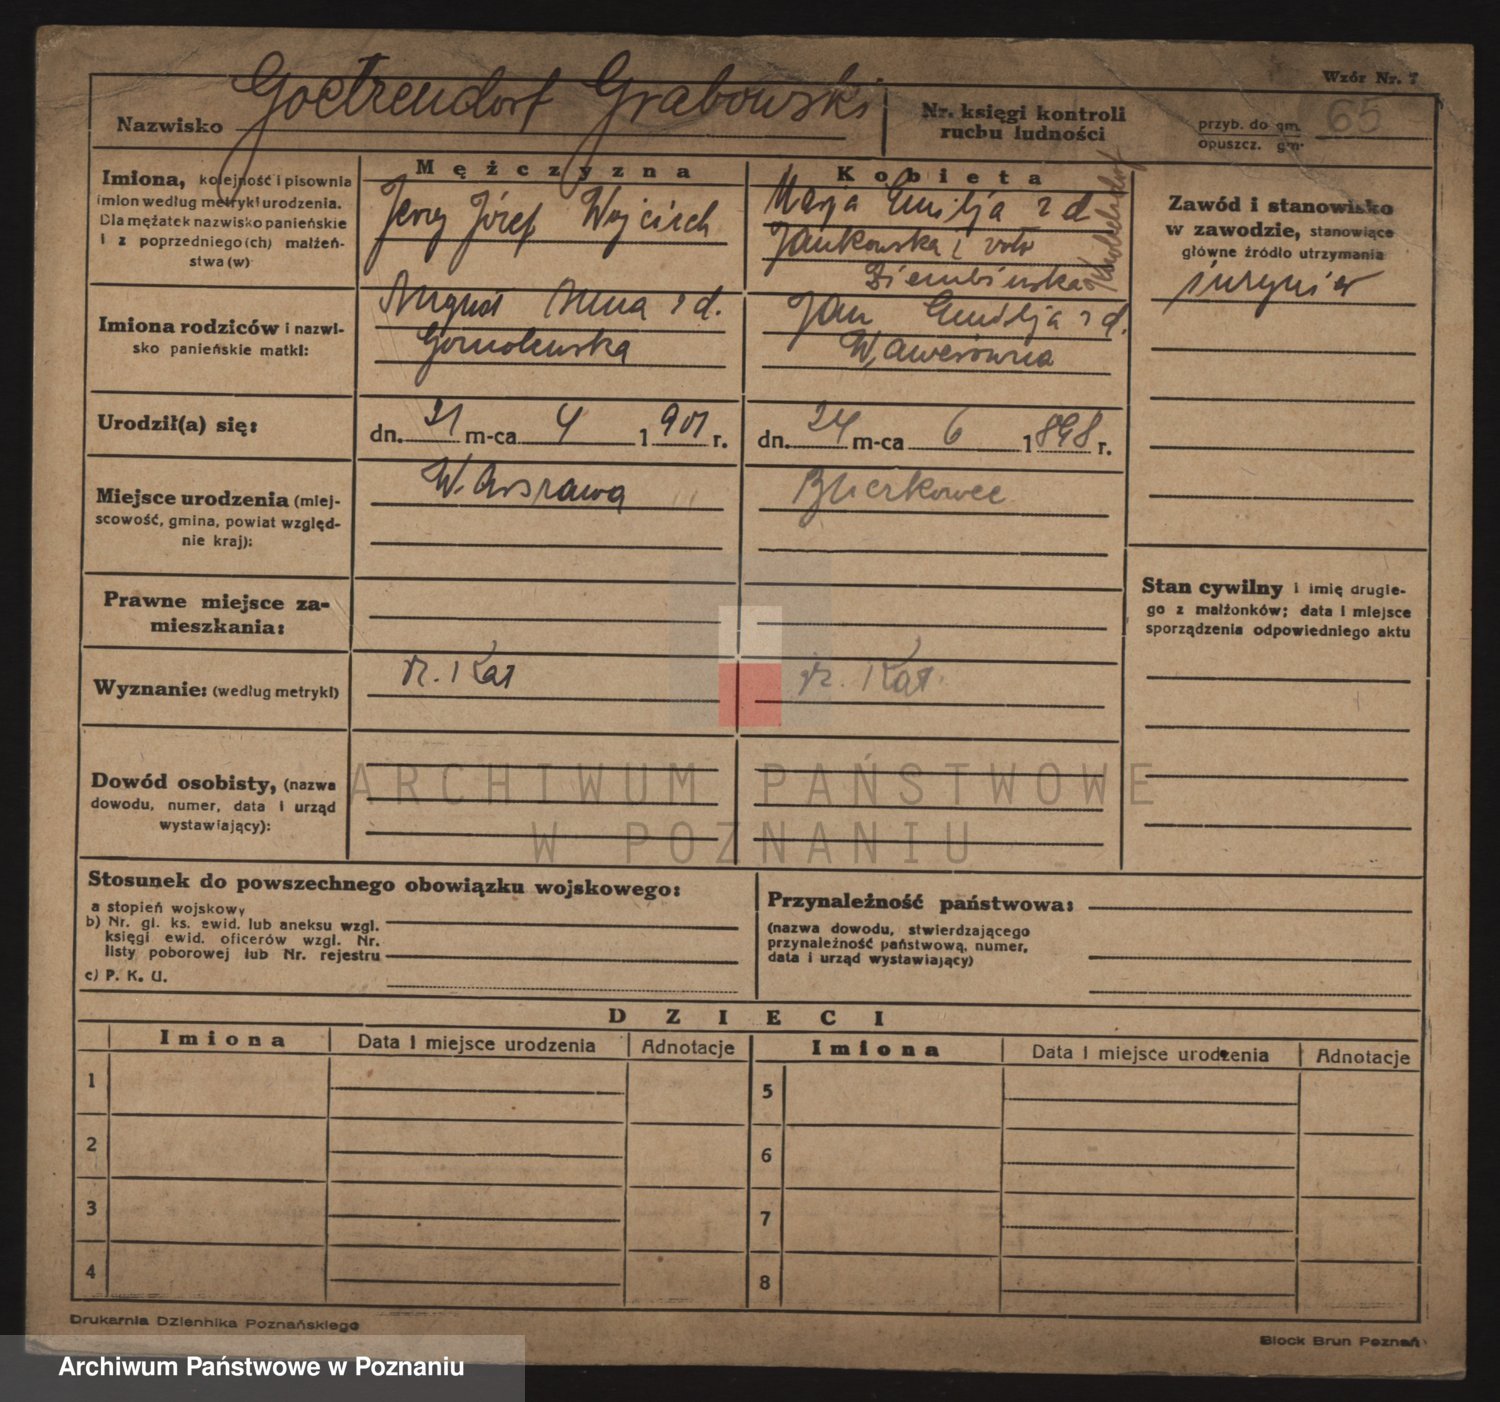 Wzór Nr. 7
Nazwisko Goetzendorf Grabowski
Nr. księgi kontroli
ruchu ludności
przyb. do gm. 65
opuszcz. gm.
Imiona, kolejność i pisownia
imion według metryki urodzenia.
Dla mężatek nazwisko panieńskie
i z poprzedniego(ch) małżeń-
stwa(w)
Mężczyzna
Jerzy Józef Wojciech
Kobieta
Marja Emilja z d
Jankowska I voto
Ziembińska
Zawód i stanowisko
w zawodzie, stanowiące
główne źródło utrzymania
inżynier
Imiona rodziców i nazwi-
sko panieńskie matki:
August Anna z d.
Gomolewska
Jan Emilja z d.
Wawerówna
Urodził(a) się:
dn. 21 m-ca 4 1901 r.
dn. 24 m-ca 6 1898 r.
Miejsce urodzenia (miej-
scowość, gmina, powiat względ-
nie kraj):
Warszawa
Prawne miejsce za-
mieszkania:
Stan cywilny i imię drugie-
go z małżonków; data i miejsce
sporządzenia odpowiedniego aktu
Wyznanie: (według metryki)
rz. Kat
rz. Kat.
Dowód osobisty, (nazwa
dowodu, numer, data i urząd
wystawiający):
ARCHIWUM PAŃSTWOWE
W POZNANIU
Stosunek do powszechnego obowiązku wojskowego:
a stopień wojskowy
b) Nr. gl. ks. ewid. lub aneksu wzgl.
księgi ewid. oficerów wzgl. Nr.
listy poborowej lub Nr. rejestru
c) P. K. U.
Przynależność państwowa:
(nazwa dowodu, stwierdzającego
przynależność państwową, numer,
data i urząd wystawiający)
DZIECI
Imiona Data i miejsce urodzenia Adnotacje Imiona Data i miejsce urodzenia Adnotacje
1 5
2 6
3 7
4 8
Drukarnia Dziennika Poznańskiego
Block Brun Poznań
Archiwum Państwowe w Poznaniu